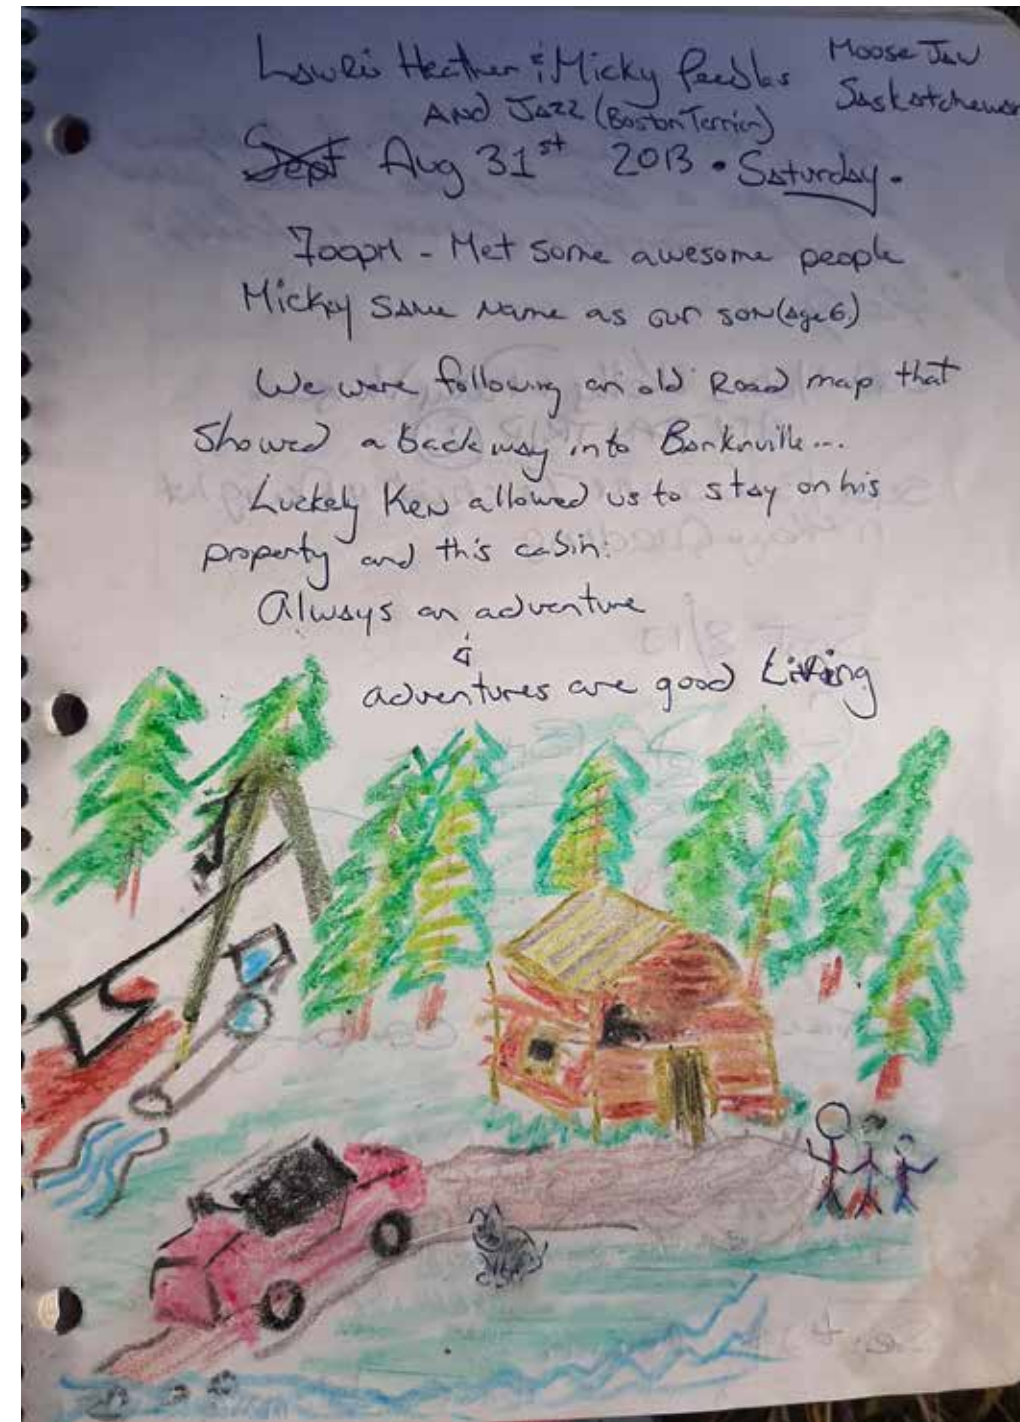 Lowri Heather & Micky Peebles
Moose Jaw
Saskatchewan
AND Jazz (Boston Terrier)
Sept Aug 31st 2013 • Saturday.
700pm - Met some awesome people
Micky same name as our son (age 6)
We were following an old Road map that
showed a back way into Barkinville...
Luckely Ken allowed us to stay on his
property and this cabin.
Always an adventure
&
adventures are good Living